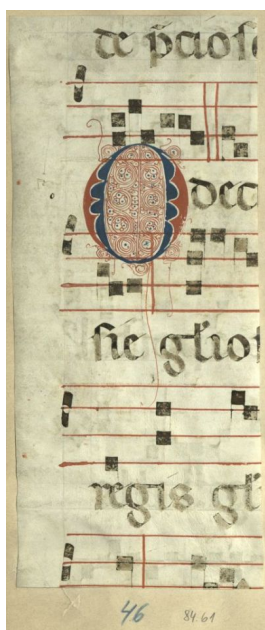 de p̄cios
O dec
sie gl̄ios
regis gl̄
46 84.61